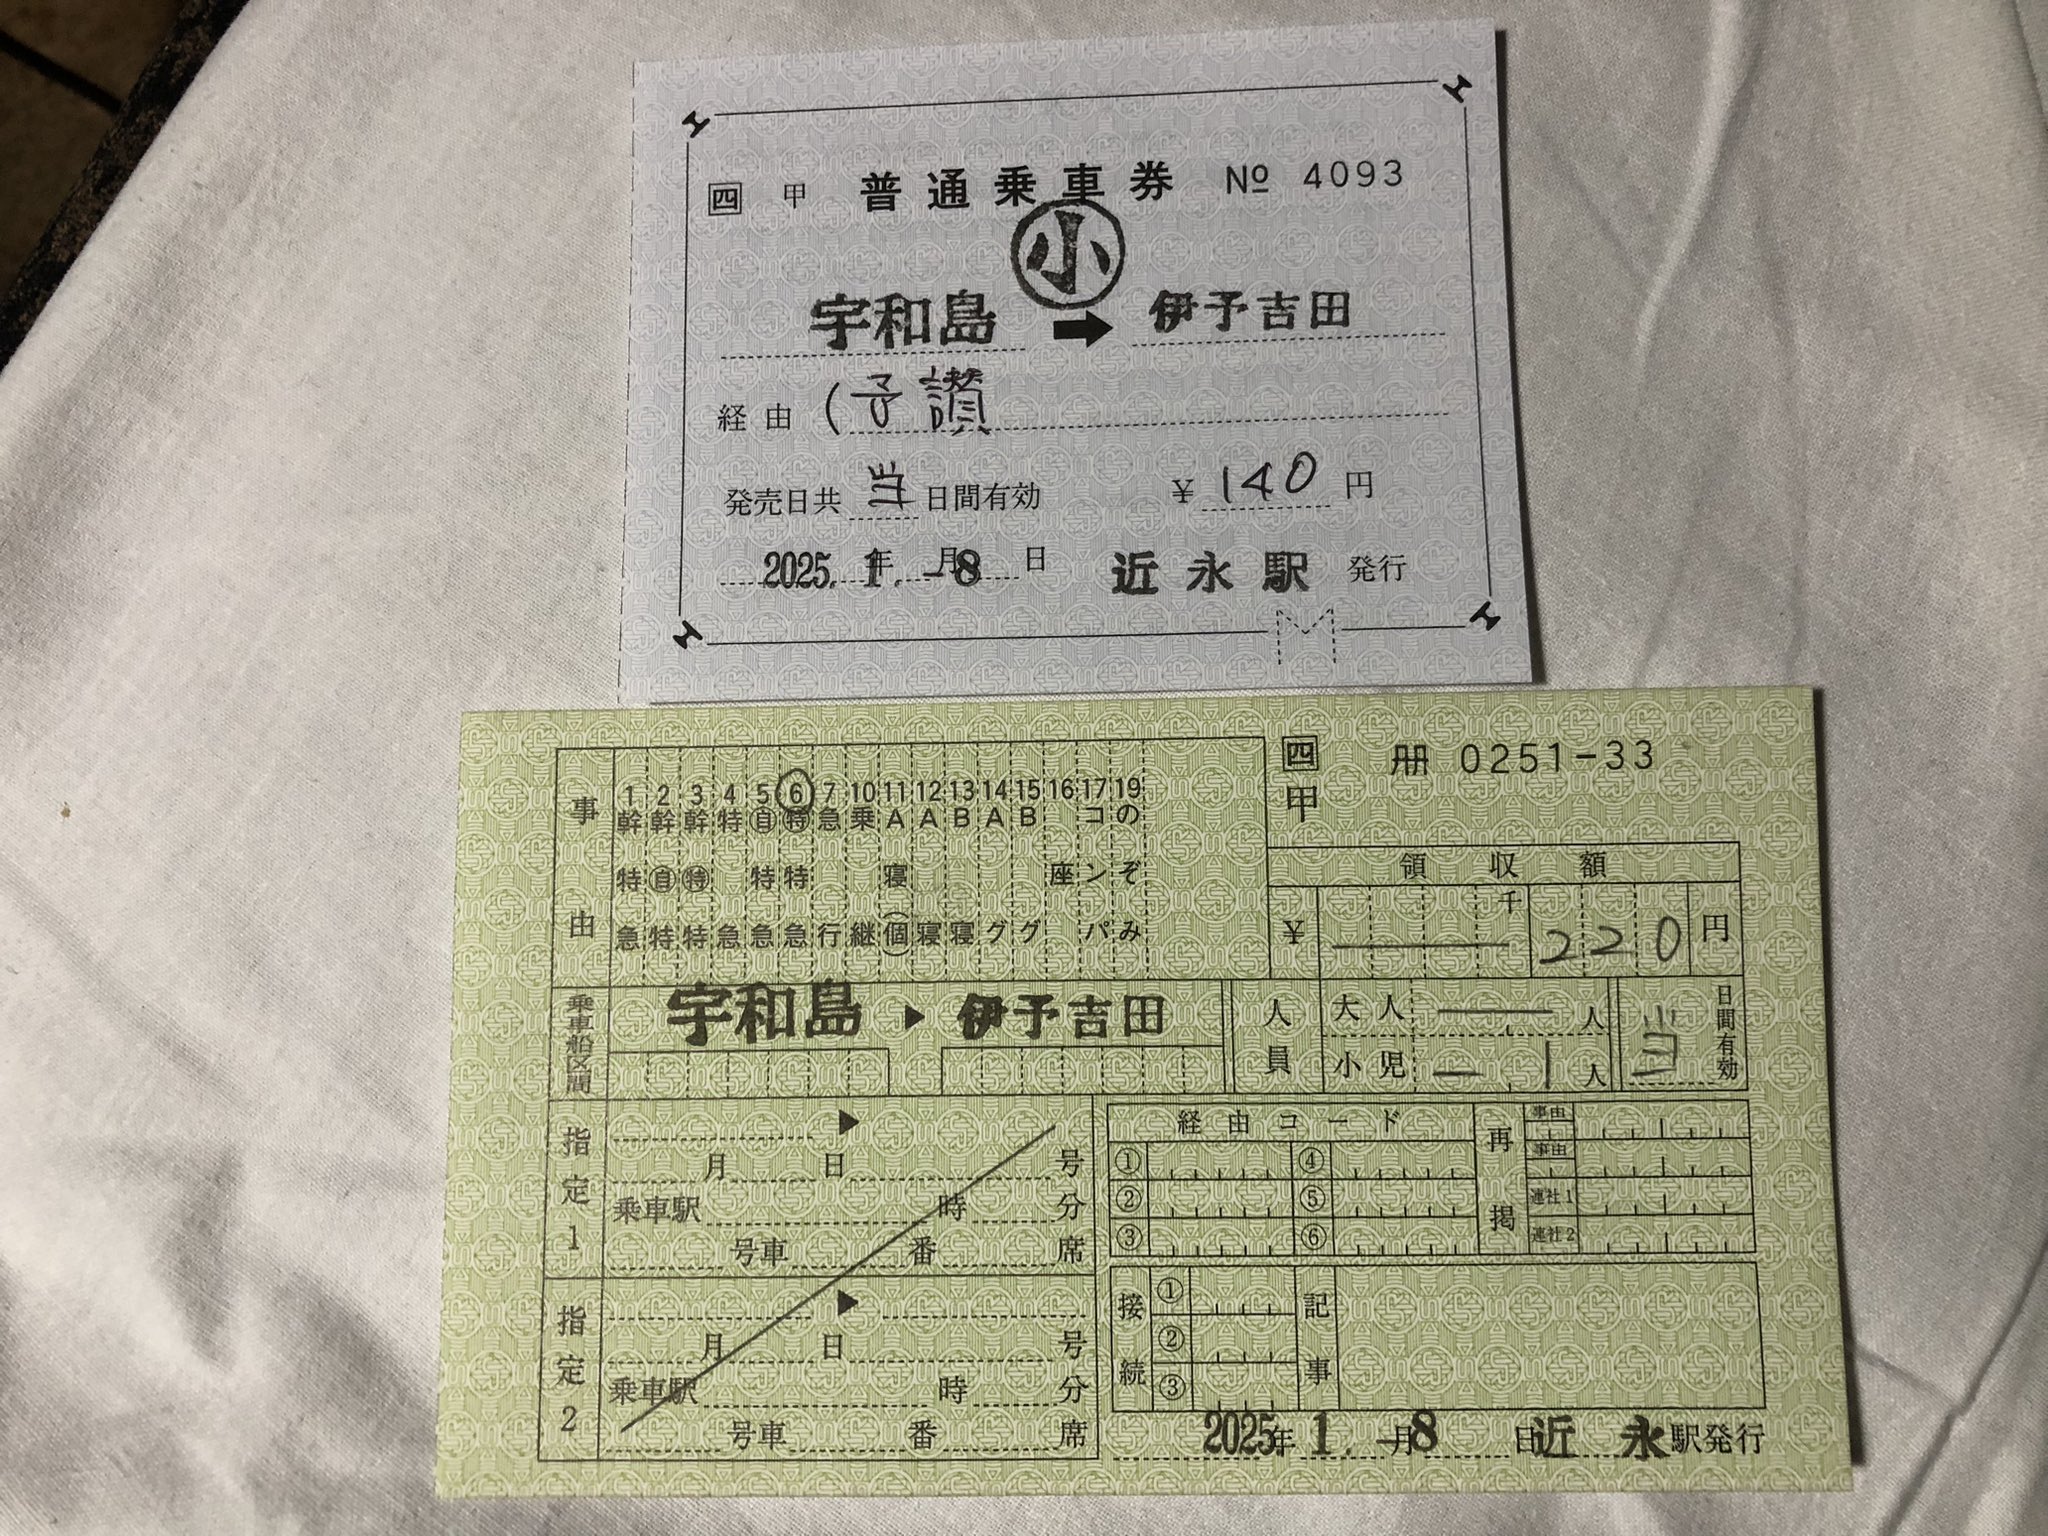 四 甲 普通乗車券 № 4093
小
宇和島 ➡ 伊予吉田
経由 (予讃
発売日共 当 日間有効 ¥ 140 円
2025年 1.月-8日 近永駅 発行
四 冊 0251-33
甲
事由
1 幹特急
2 幹自特
3 幹特特
4 特急
5 自特急
6 特特急
7 急行
10 乗継
11 A寝(個)
12 A寝
13 B寝
14 Aグ
15 Bグ
16 座
17 コンパ
19 のぞみ
領収額
¥ 千 220 円
乗車船区間 宇和島 ▶ 伊予吉田
人員 大人 — 人
小児 — 1 人
当 日間有効
指定1 ▶
月 日 号
乗車駅 時 分
号車 番 席
指定2 ▶
月 日 号
乗車駅 時 分
号車 番 席
経由コード
① ④
② ⑤
③ ⑥
再掲
事由
事由
連社1
連社2
接続 ① ② ③
記事
2025年 1.月-8日 近永駅発行